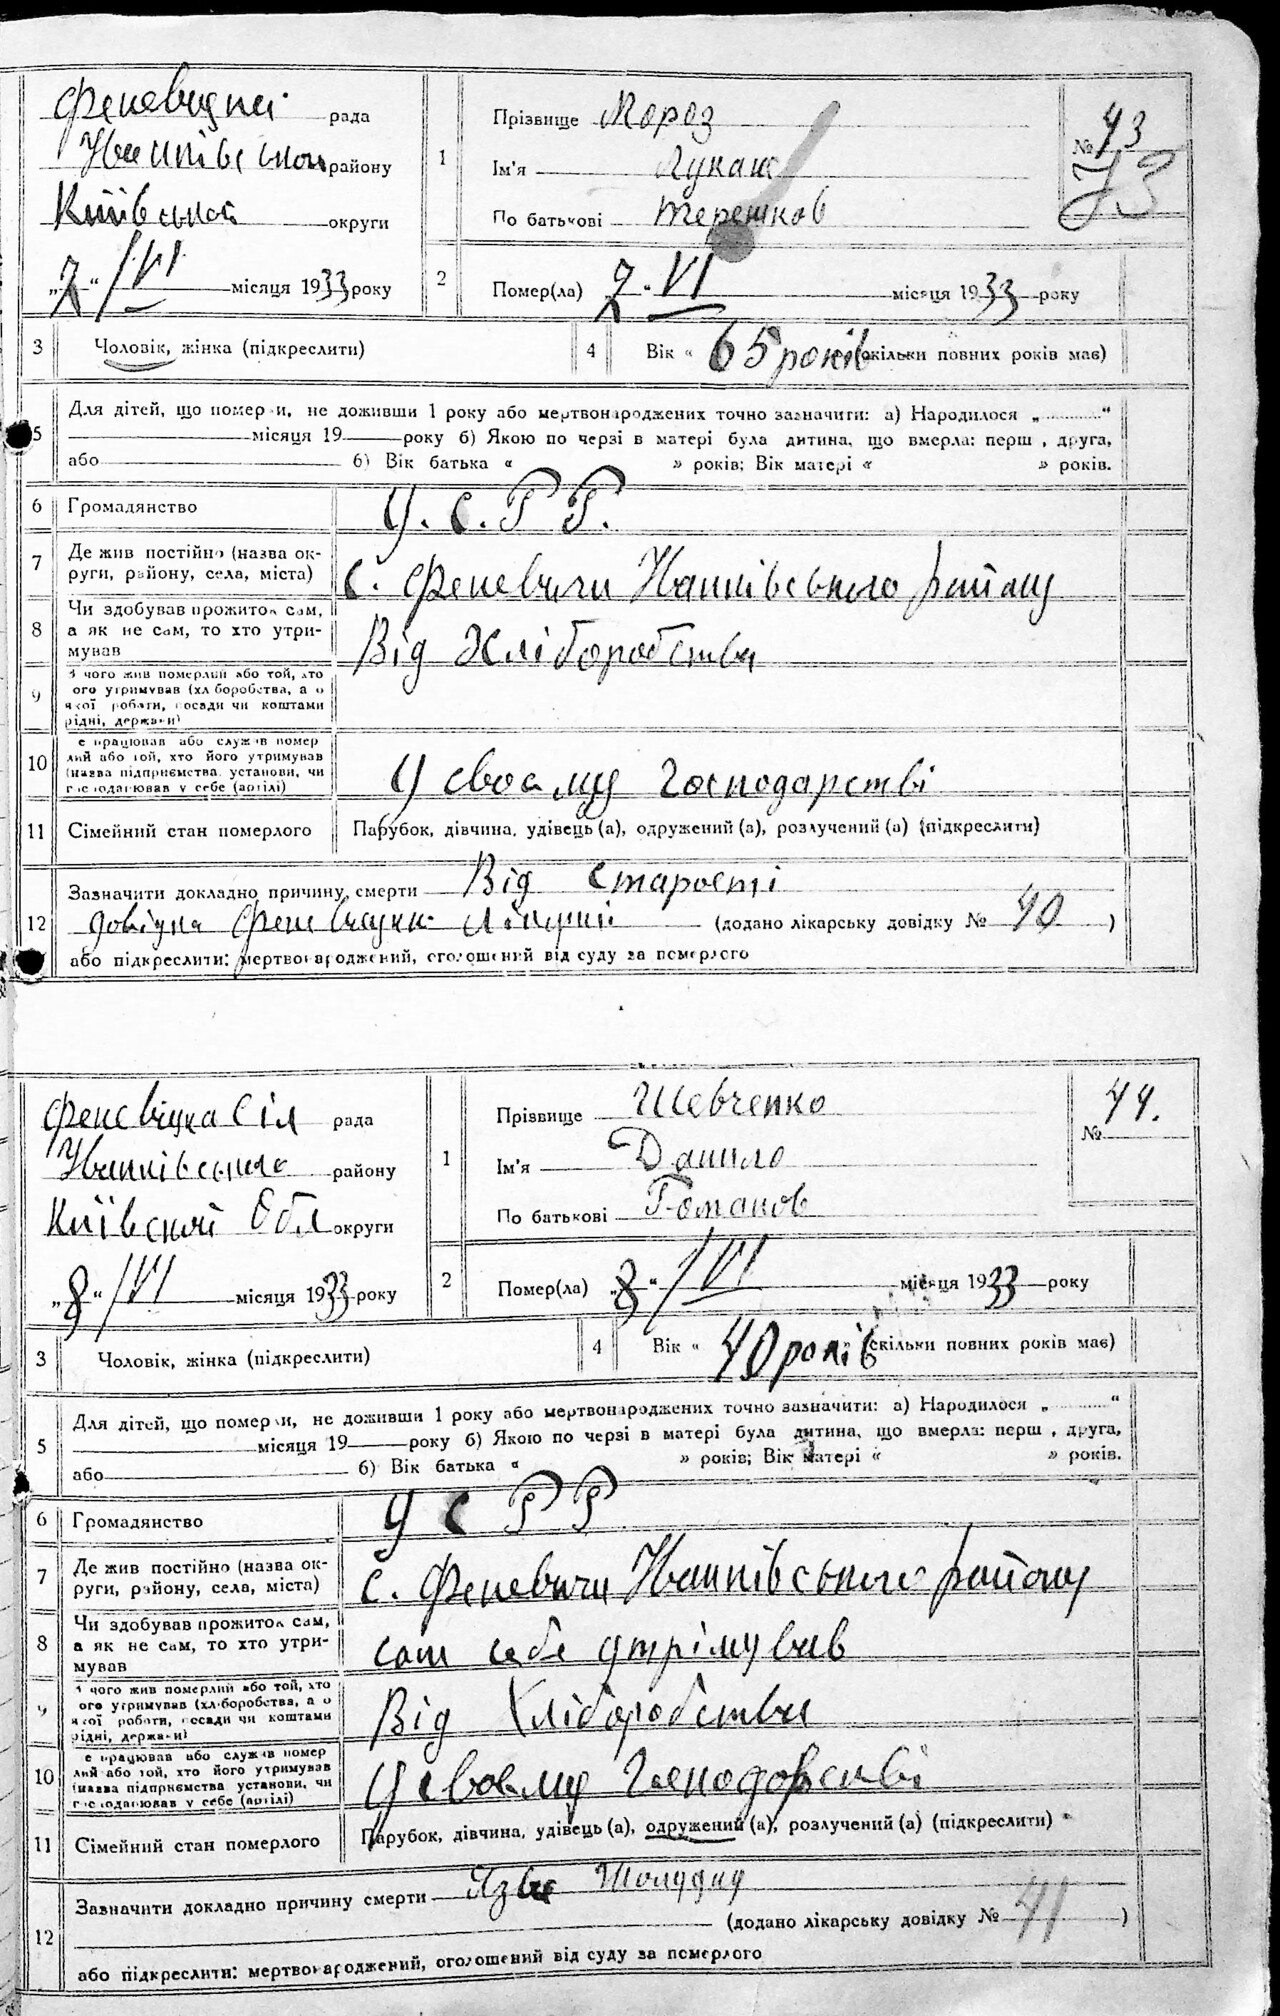 Феневицкої рада
Іванківського району
Київської округи
„2“ /VI місяця 1933 року
1
Прізвище Мороз
Ім'я Лукаш
По батькові Терешков
№ 43
73
2
Помер(ла) 2 “ VI місяця 1933 року
3 Чоловік, жінка (підкреслити)
4 Вік « 65 років (скільки повних років має)
5 Для дітей, що померли, не доживши 1 року або мертвонароджених точно зазначити: а) Народилося „ “
місяця 19 року б) Якою по черзі в матері була дитина, що вмерла: перш , друга,
або б) Вік батька « » років; Вік матері « » років.
6 Громадянство У.С.Р.Р.
7 Де жив постійно (назва ок-
руги, району, села, міста) с. Феневичи Іванківського району
8 Чи здобував прожиток сам,
а як не сам, то хто утри-
мував Від Хліборобства
9 З чого жив померлий або той, хто
ого утримував (хл боробства, а о
якої роботи, посади чи коштами
рідні, держави)
10 е працював або служив помер
лий або той, хто його утримував
(назва підприємства, установи, чи
господарював у себе (артілі) У своєму господарстві
11 Сімейний стан померлого Парубок, дівчина, удівець (а), одружений (а), розлучений (а) (підкреслити)
Зазначити докладно причину смерти Від старості
12 довідка (додано лікарську довідку № 40 )
або підкреслити: мертвонароджений, оголошений від суду за померлого
Феневіцка Сіл рада
Іванківського району
Київской Обл округи
„8“ /VI місяця 1933 року
1
Прізвище Шевченко
Ім'я Данило
По батькові Романов
№ 44.
2
Помер(ла) „8“ /VI місяця 1933 року
3 Чоловік, жінка (підкреслити)
4 Вік « 40 років (скільки повних років має)
5 Для дітей, що померли, не доживши 1 року або мертвонароджених точно зазначити: а) Народилося „ “
місяця 19 року б) Якою по черзі в матері була дитина, що вмерла: перш , друга,
або б) Вік батька « » років; Вік матері « » років.
6 Громадянство У С Р Р
7 Де жив постійно (назва ок-
руги, району, села, міста) с. Феневичи Іванківського району
8 Чи здобував прожиток сам,
а як не сам, то хто утри-
мував сам себе утрімував
9 З чого жив померлий або той, хто
ого утримував (хл боробства, а о
якої роботи, посади чи коштами
рідні, держави) Від Хліборобства
10 е працював або служив помер
лий або той, хто його утримував
(назва підприємства установи, чи
господарював у себе (артілі) У своєму господорстві
11 Сімейний стан померлого Парубок, дівчина, удівець (а), одружений (а), розлучений (а) (підкреслити)
Зазначити докладно причину смерти Язва Шолудка
12 (додано лікарську довідку № 41 )
або підкреслити: мертвонароджений, оголошений від суду за померлого